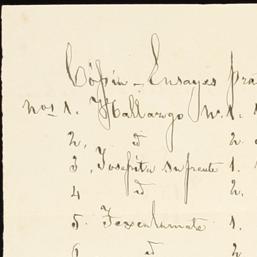 Cópia - Ensayes pra
nos 1. Hallazgo No. 1.
2. d 2.
3. Josefita su frente 1.
4 d 2.
5. Texcalamate 1.
6 d 2